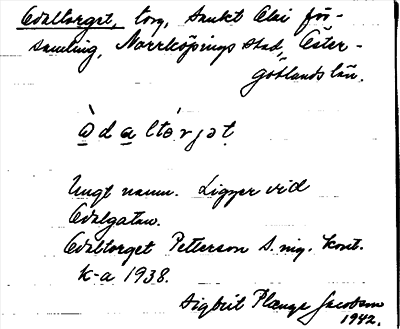 Odaltorget, torg, Sankt Olai för-
samling, Norrköpings stad, Öster-
götlands län.
òdaltórjət
Ungt namn. Ligger vid
Odalgatan.
Odaltorget Petterson S. mg. Kont.
K-a 1938.
Sigbrit Plænge Jacobson
1942.